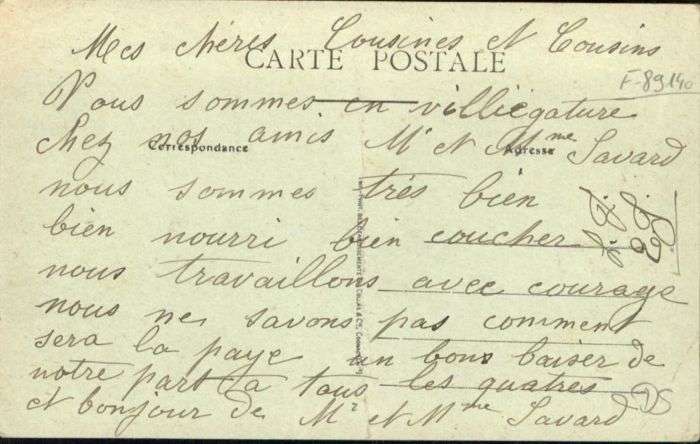 Mes chéres Cousines et Cousins
CARTE POSTALE
F-89140
Nous sommes en villiégature
chez nos amis Mr et Mme Savard
Correspondance
Adresse
nous sommes trés bien
bien nourri bien coucher
nous travaillons avec courage
nous ne savons pas comment
sera la paye un bons baiser de
notre part a tous les quatres
et bonjour de Mr et Mme Savard
DS